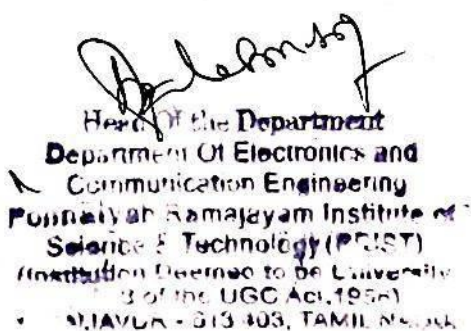 Head Of the Department
Department Of Electronics and
Communication Engineering
Ponnaiyah Ramajayam Institute of
Science & Technology (PRIST)
(Institution Deemed to be University
3 of the UGC Act, 1956)
613 403, TAMIL